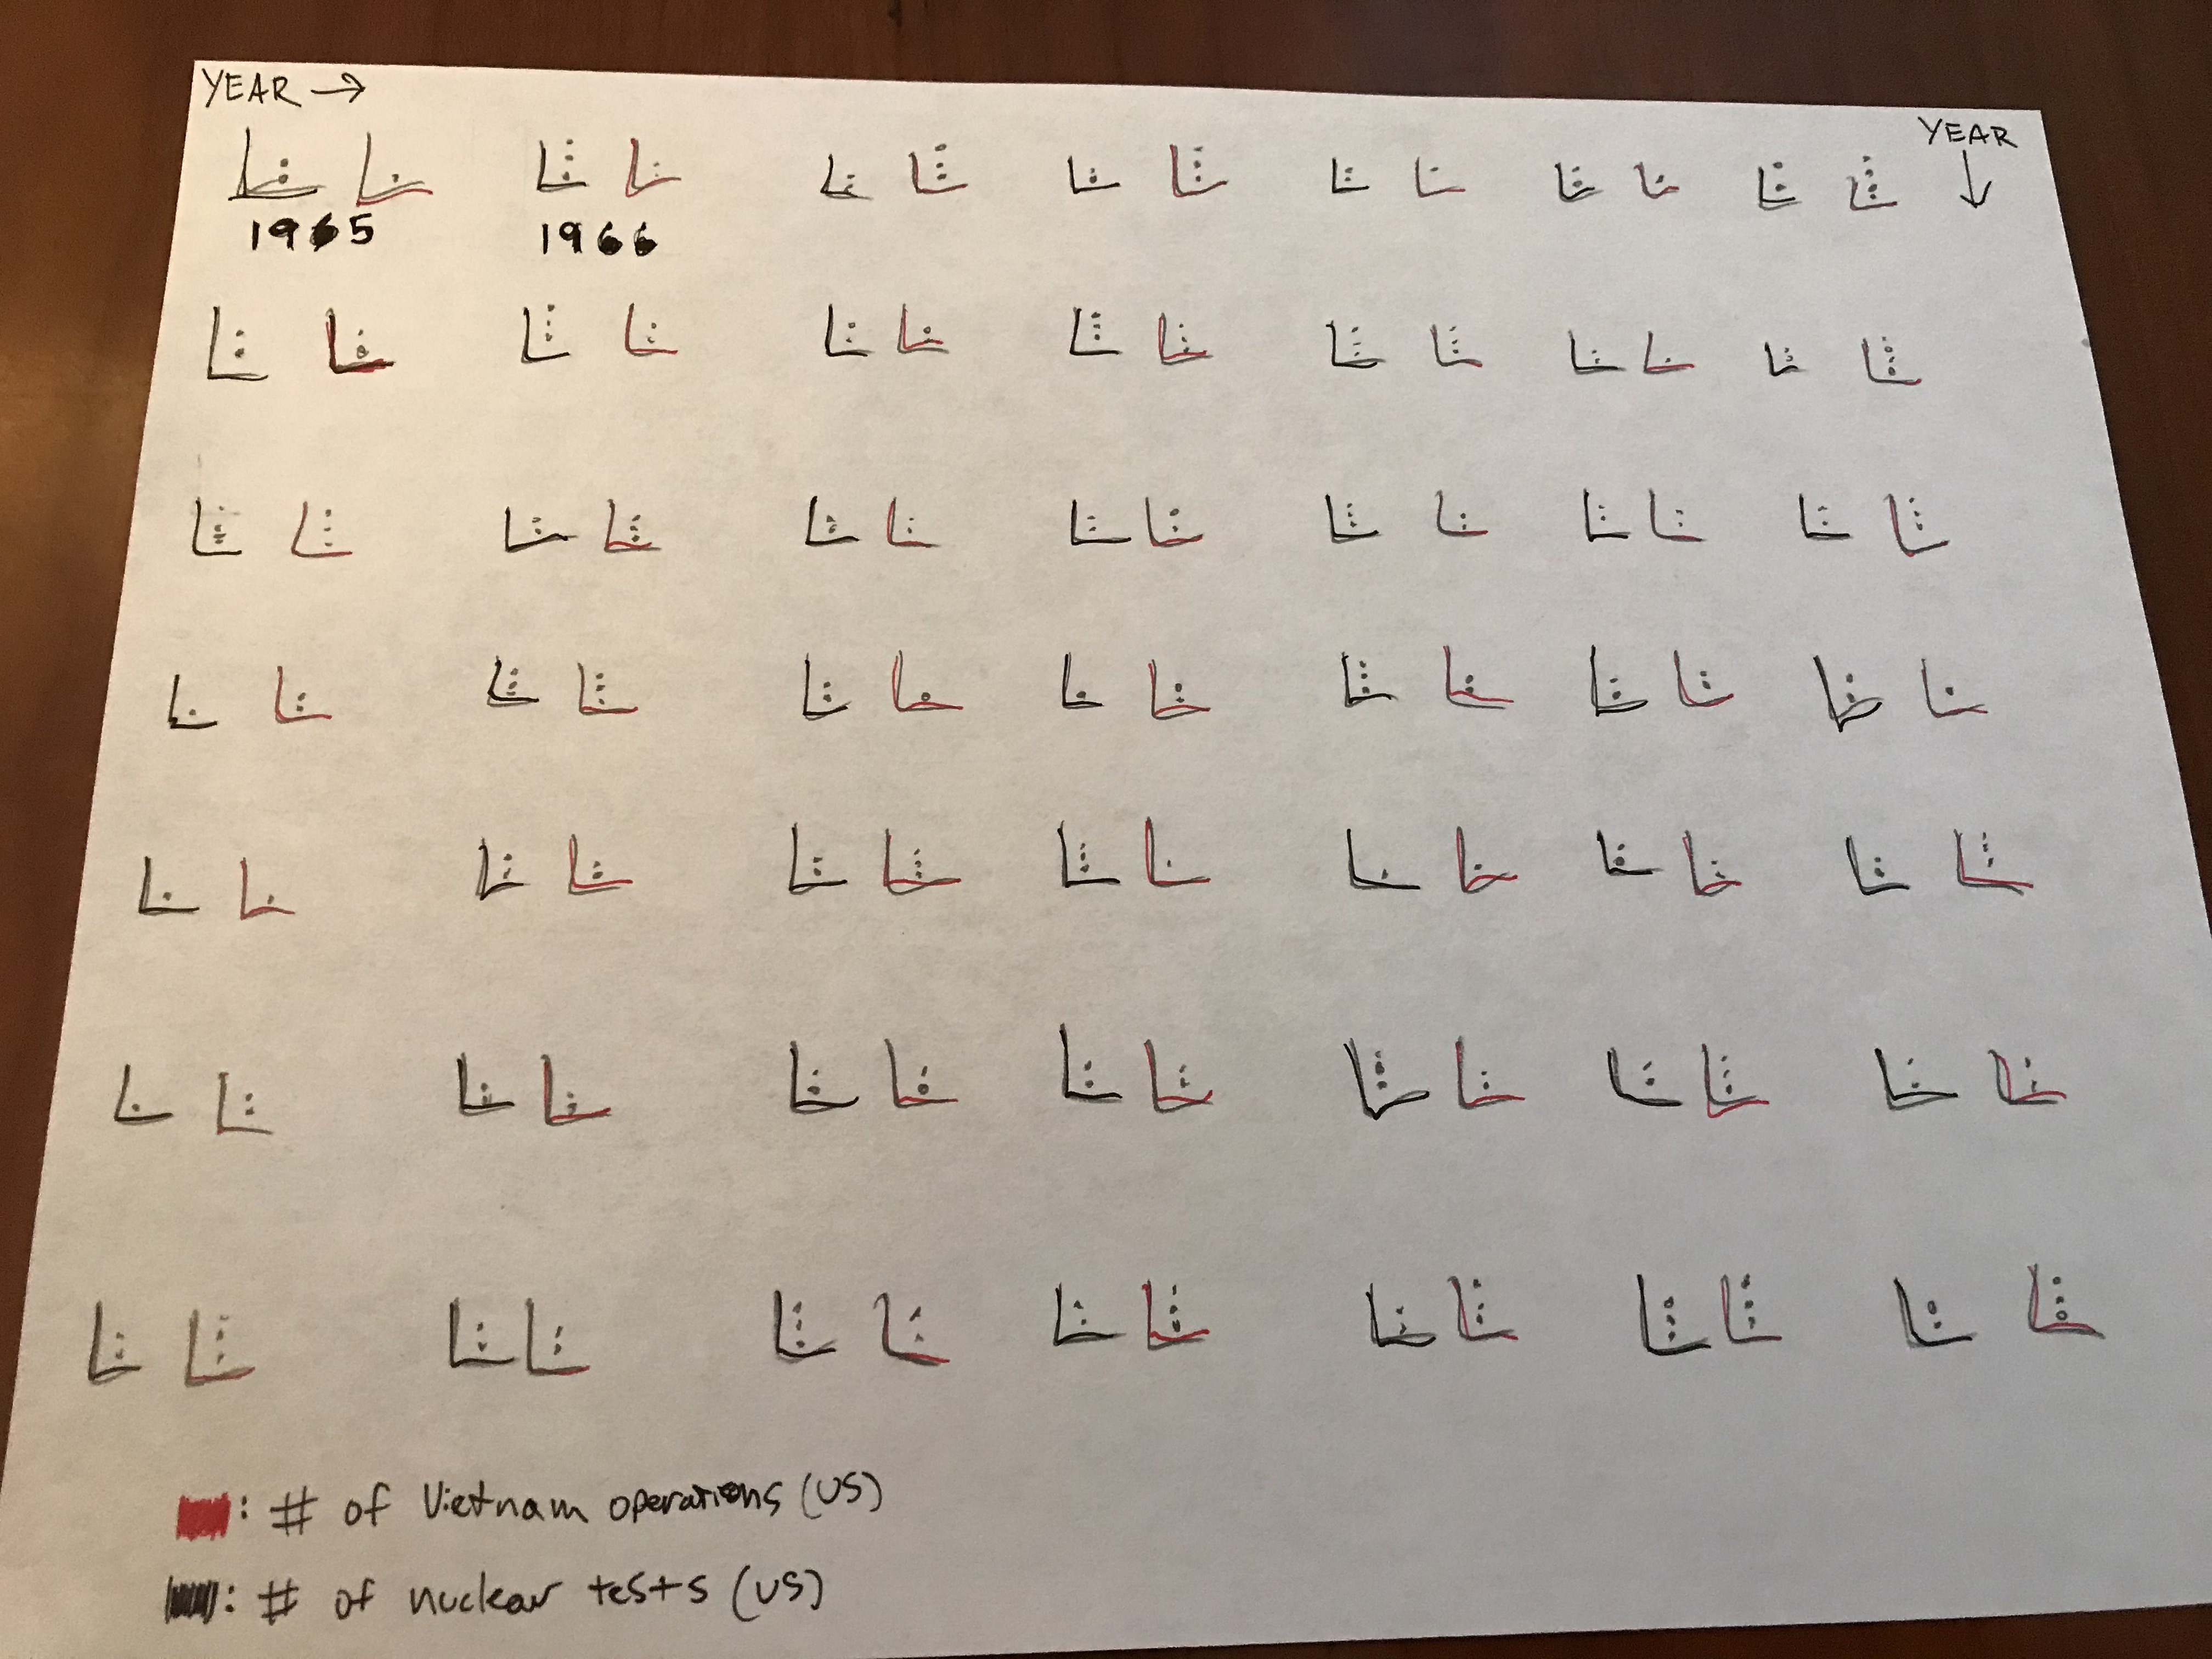 YEAR →
YEAR ↓
1965 1966
: # of Vietnam operations (US)
: # of nuclear tests (US)